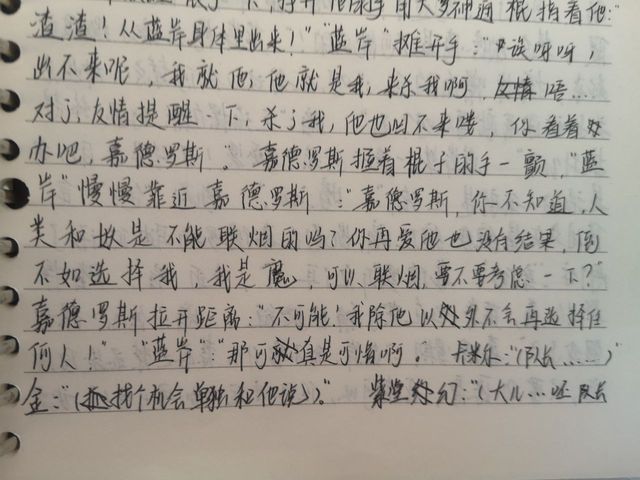 了一下，抄开他的手用大罗神通棍指着他：“
渣渣！从蓝岸身体里出来！”“蓝岸”摊开手：“诶呀呀，
出不来呢，我就他，他就是我，来杀我啊，唔…
对了，友情提醒一下，杀了我，他也回不来喽，你看着
办吧，嘉德罗斯。”嘉德罗斯握着棍子的手一颤，“蓝
岸”慢慢靠近嘉德罗斯：“嘉德罗斯，你不知道，人
类和是不能联烟的吗？你再爱他也没有结果，倒
不如选择我，我是魔，可以联烟，要不要考虑一下？”
嘉德罗斯拉开距离：“不可能！我除他以外不会再选择任
何人！”“蓝岸”：“那可真是可惜啊。”卡米尔：“（队长……）
金：“（找个机会单独和他说）。”紫堂幻：“（大儿…呸队长